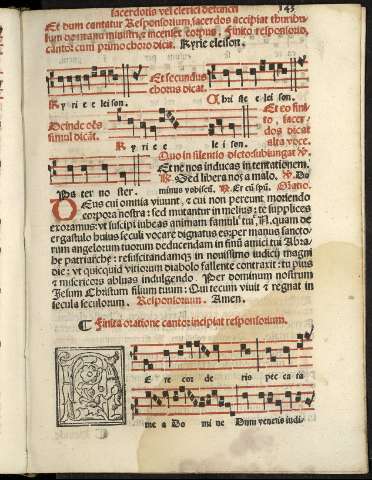 sacerdotis vel clerici defuncti 143
Et dum cantatur Responsorium, sacerdos accipiat thuribu
lum de manu ministri et incenset corpus. Finito responsorio,
cantor cum primo choro dicat. Kyrie eleison.
Et secundus
chorus dicat.
Kyrie eleison. Christe eleison.
Deinde oēs
simul dicāt.
Et eo fini
to, sacer
dos dicat
alta voce.
Kyrie eleison.
Quo in silentio dicto subiungat ℣.
Et ne nos inducas in tentationem.
℟. Sed libera nos a malo. ℣. Do
Pater noster. minus vobiscū. ℟. Et cū spū. Oratio.
DEus cui omnia viuunt, et cui non pereunt moriendo
corpora nostra: sed mutantur in melius: te supplices
exoramus: vt suscipi iubeas animam famuli tui .N. quam de
ergastulo huius seculi vocare dignatus es: per manus sancto
rum angelorum tuorum deducendam in sinū amici tui Abra
he patriarche: resuscitandamqz in nouissimo iudicij magni
die: vt quicquid vitiorum diabolo fallente contraxit: tu pius
et misericors abluas indulgendo. Per dominum nostrum
Jesum Christum filium tuum: Qui tecum viuit et regnat in
secula seculorum. Responsorium. Amen.
¶ Finita oratione cantor incipiat responsorium.
E recorderis peccata
mea Domine Dum veneris iudi-